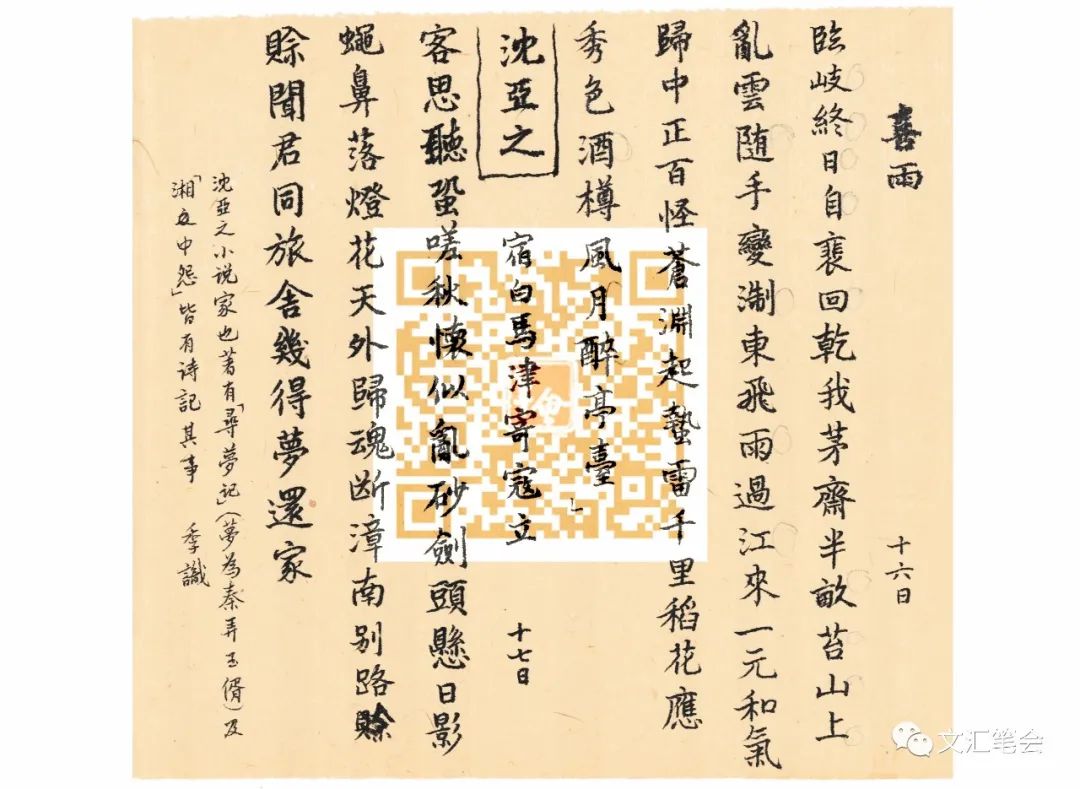 喜雨
十六日
臨歧終日自裴回乾我茅齋半畝苔山上
亂雲随手變淛東飛雨過江來一元和氣
歸中正百怪蒼淵起蟄雷千里稻花應
秀色酒樽風月醉亭臺」
沈亞之
宿白馬津寄寇立
十七日
客思聽蛩嗟秋懷似亂砂劍頭懸日影
蠅鼻落燈花天外歸魂断漳南别路賒
賒聞君同旅舍幾得夢還家
沈亞之小说家也著有「尋夢記」(夢為秦弄玉偦)及
「湘文中怨」皆有诗記其事
季識
文汇笔会